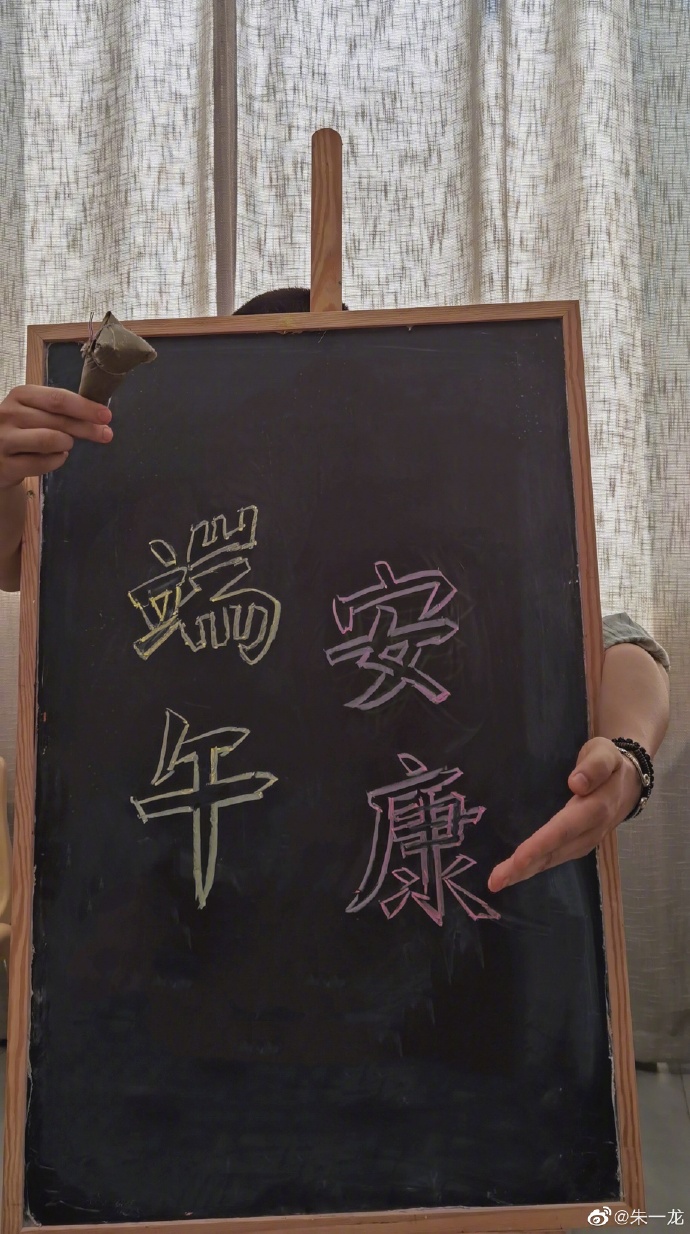 端午
安康
@朱一龙